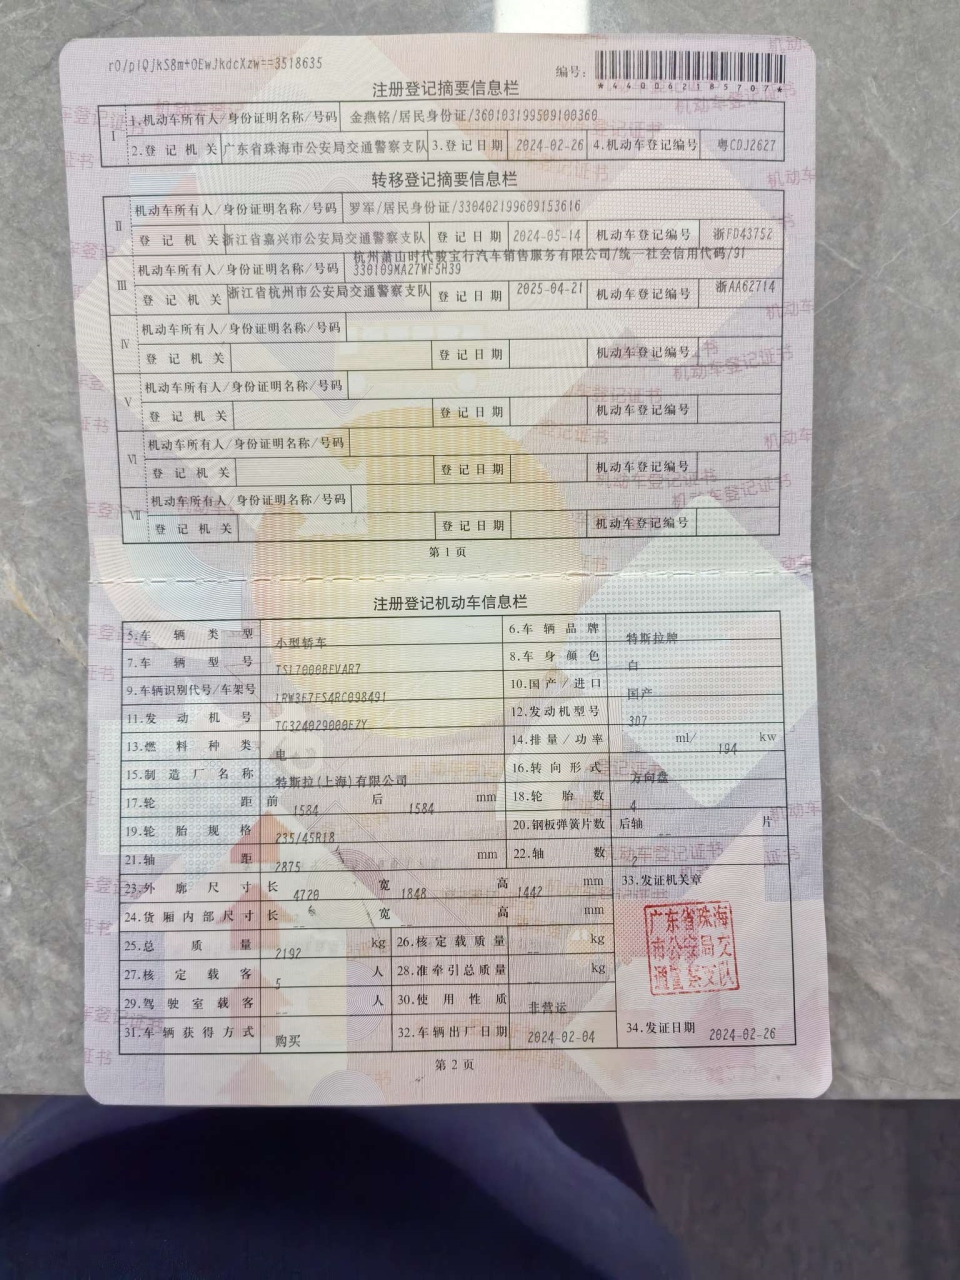 rO/plQjkS8m+OEwJkdcXzw==3518635
编号:
*440062185707*
注册登记摘要信息栏
I 1.机动车所有人/身份证明名称/号码 金燕铭/居民身份证/360103199509100360
2.登记机关 广东省珠海市公安局交通警察支队 3.登记日期 2024-02-26 4.机动车登记编号 粤CDJ2627
转移登记摘要信息栏
II 机动车所有人/身份证明名称/号码 罗军/居民身份证/330402199609153616
登记机关 浙江省嘉兴市公安局交通警察支队 登记日期 2024-05-14 机动车登记编号 浙FD43752
III 机动车所有人/身份证明名称/号码 杭州萧山时代骏宝行汽车销售服务有限公司/统一社会信用代码/91
330109MA27WF5H39
登记机关 浙江省杭州市公安局交通警察支队 登记日期 2025-04-21 机动车登记编号 浙AA62714
IV 机动车所有人/身份证明名称/号码
登记机关 登记日期 机动车登记编号
V 机动车所有人/身份证明名称/号码
登记机关 登记日期 机动车登记编号
VI 机动车所有人/身份证明名称/号码
登记机关 登记日期 机动车登记编号
VII 机动车所有人/身份证明名称/号码
登记机关 登记日期 机动车登记编号
第1页
注册登记机动车信息栏
5.车辆类型 小型轿车 6.车辆品牌 特斯拉牌
7.车辆型号 TSL7000BEVAR7 8.车身颜色 白
9.车辆识别代号/车架号 LRW3E7FS4RC098491 10.国产/进口 国产
11.发动机号 TG324029000EZY 12.发动机型号 3D7
13.燃料种类 电 14.排量/功率 ml/ 194 kw
15.制造厂名称 特斯拉(上海)有限公司 16.转向形式 方向盘
17.轮距 前 1584 后 1584 mm 18.轮胎数 4
19.轮胎规格 235/45R18 20.钢板弹簧片数 后轴 -- 片
21.轴距 2875 mm 22.轴数 2
23.外廓尺寸 长 4720 宽 1848 高 1442 mm 33.发证机关章
24.货厢内部尺寸 长 -- 宽 -- 高 -- mm
广东省珠海
市公安局交
通警察支队
25.总质量 2192 kg 26.核定载质量 -- kg
27.核定载客 5 人 28.准牵引总质量 -- kg
29.驾驶室载客 -- 人 30.使用性质 非营运
31.车辆获得方式 购买 32.车辆出厂日期 2024-02-04 34.发证日期 2024-02-26
第2页